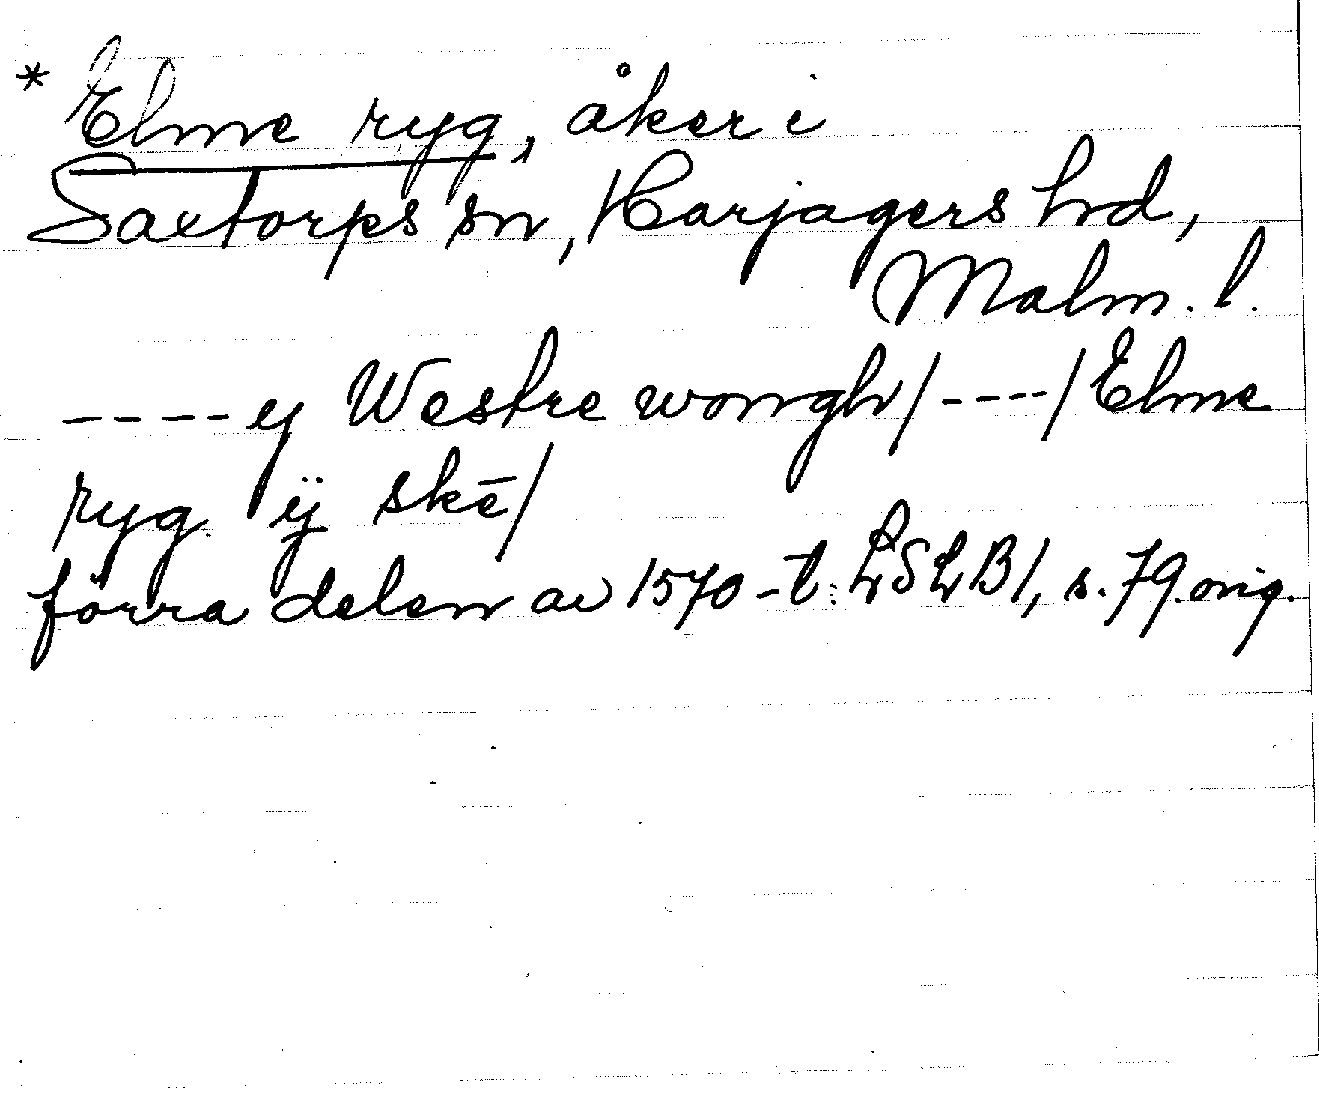 * Elme ryg, åker i
Saxtorps sn, Harjagers hd,
Malm. l.
---- y Westre wongh/ ----/ Elme
ryg ij skē/
förra delen av 1570-t. LSLB1, s. 79 orig.